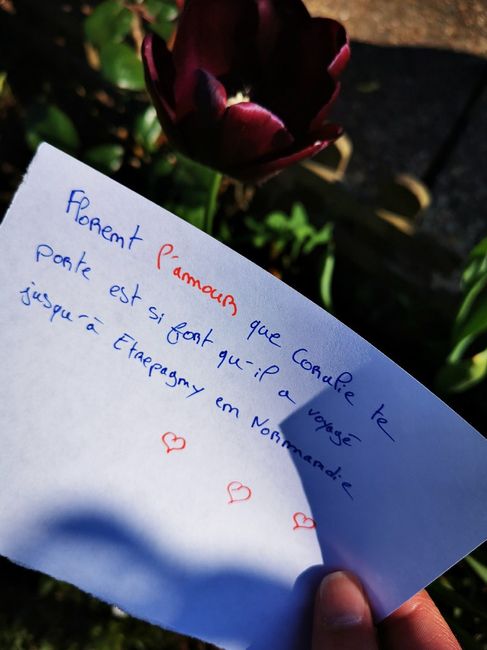 Florent l'amour que Coralie te
porte est si fort qu-il a voyagé
jusqu-à Etrepagny en Normandie